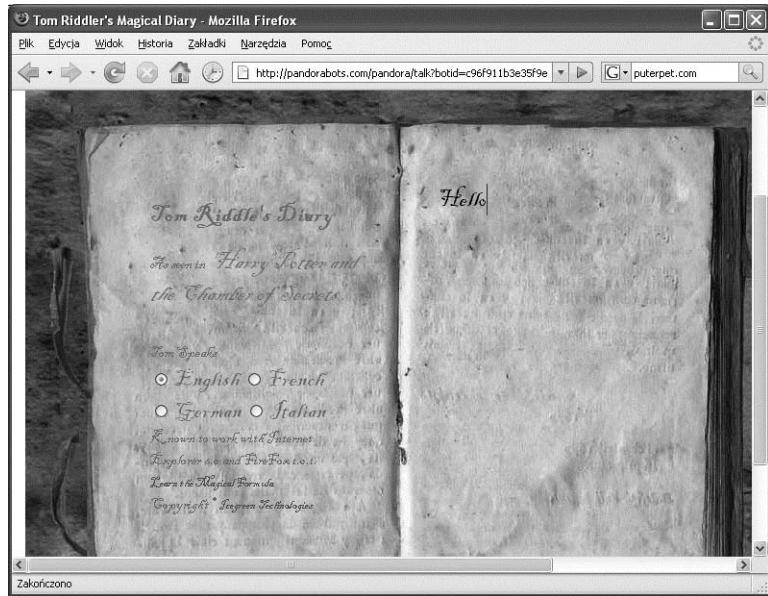 Tom Riddler's Magical Diary - Mozilla Firefox
Plik Edycja Widok Historia Zakładki Narzędzia Pomoc
http://pandorabots.com/pandora/talk?botid=c96f911b3e35f9e G puterpet.com
Tom Riddle's Diary
As seen in Harry Potter and
the Chamber of Secrets
Tom Speaks
English French
German Italian
Known to work with Internet
Explorer 6.0 and FireFox 1.0.1.
Learn the Magical Formula
Copyright © Icegreen Technologies
Hello
Zakończono